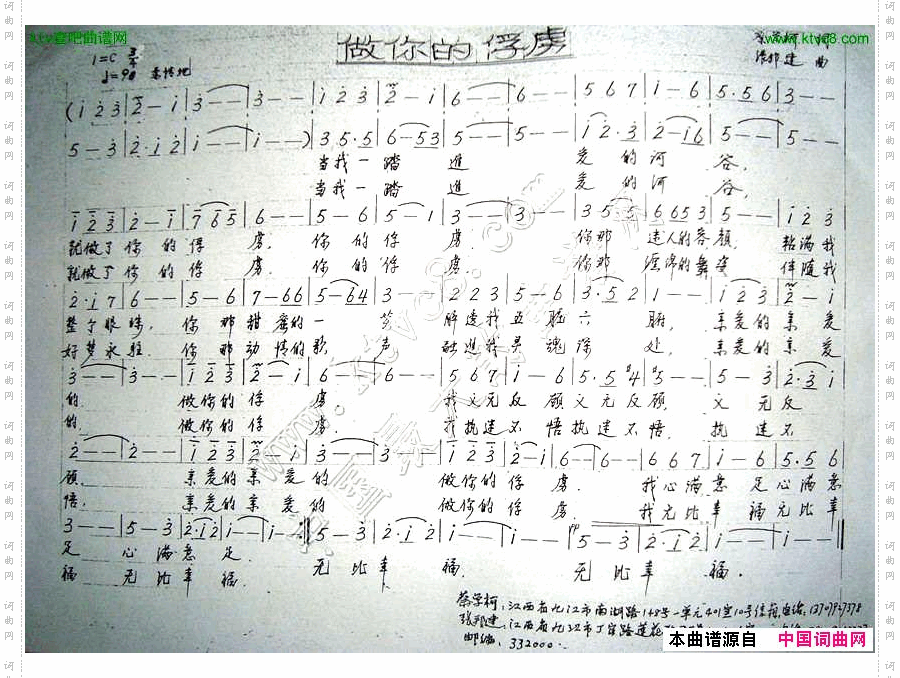 ktv喜吧曲谱网
www.ktvc8.com
做你的俘虏
1=C 3/4
♩=90 柔情地
蔡学柯 词
张邦建 曲
(1 2 3 | 2 - 1 | 3 - - | 3 - - | 1 2 3 | 2 - 1 | 6 - - | 6 - - | 5 6 7 | 1 - 6 | 5· 5 6 | 3 - - |
5 - 3 | 2· 1 2 | 1 - - | 1 - - ) | 3 5· 5 | 6 - 5 3 | 5 - - | 5 - - | 1 2· 3 | 2 - 1 6 | 5 - - | 5 - - |
当我一踏 進 爱的河 谷,
当我一踏 進 爱的河 谷,
1 2 3 | 2 - 1 | 7 6 5 | 6 - - | 5 - 6 | 5 - 1 | 3 - - | 3 - - | 3 5 5 | 6 6 5 3 | 5 - - | 1 2 3
就做了你的俘 虏, 你的俘 虏. 你那 迷人的容颜, 粘满我
就做了你的俘 虏, 你的俘 虏. 你那 的舞姿 伴随我
2· 1 7 | 6 - - | 5 - 6 | 7 - 6 6 | 5 - 6 4 | 3 - - | 2 2 3 | 5 - 6 | 3· 5 2 | 1 - - | 1 2 3 | 2 - 1
整个眼球, 你那甜蜜的一 笑 醉透我五脏六 腑, 亲爱的亲爱
好梦永驻. 你那动情的歌 声 融進我灵魂深 处, 亲爱的亲爱
3 - - | 3 - - | 1 2 3 | 2 - 1 | 6 - - | 6 - - | 5 6 7 | 1 - 6 | 5· 5 #4 | 5 - - | 5 - 3 | 2· 3 1
的 做你的俘 虏. 我义无反 顾义无反顾, 义无反
的 做你的俘 虏. 我执迷不 悟执迷不悟, 执迷不
2 - - | 2 - - | 1 2 3 | 2 - 1 | 3 - - | 3 - - | 1 2 3 | 2 - 1 | 6 - - | 6 - - | 6 6 7 | 1 - 6 | 5· 5 6
顾, 亲爱的亲爱的 做你的俘 虏. 我心满意 足心满意
悟, 亲爱的亲爱的 做你的俘 虏. 我无比幸 福无比幸
3 - - | 5 - 3 | 2· 1 2 | 1 - - | 1 - - :| 5 - 3 | 2· 1 2 | 1 - - | 1 - - | 5 - 3 | 2· 1 2 | 1 - - | 1 - - ‖
足 心满意足. 无比幸 福, 无比幸 福.
福 无比幸福.
蔡学柯:江西省九江市南湖路148号一单元401室10号信箱,电话:
张邦建:江西省九江市
邮编:332000.
www.ktvc8.com
本曲谱源自 中国词曲网
词曲网